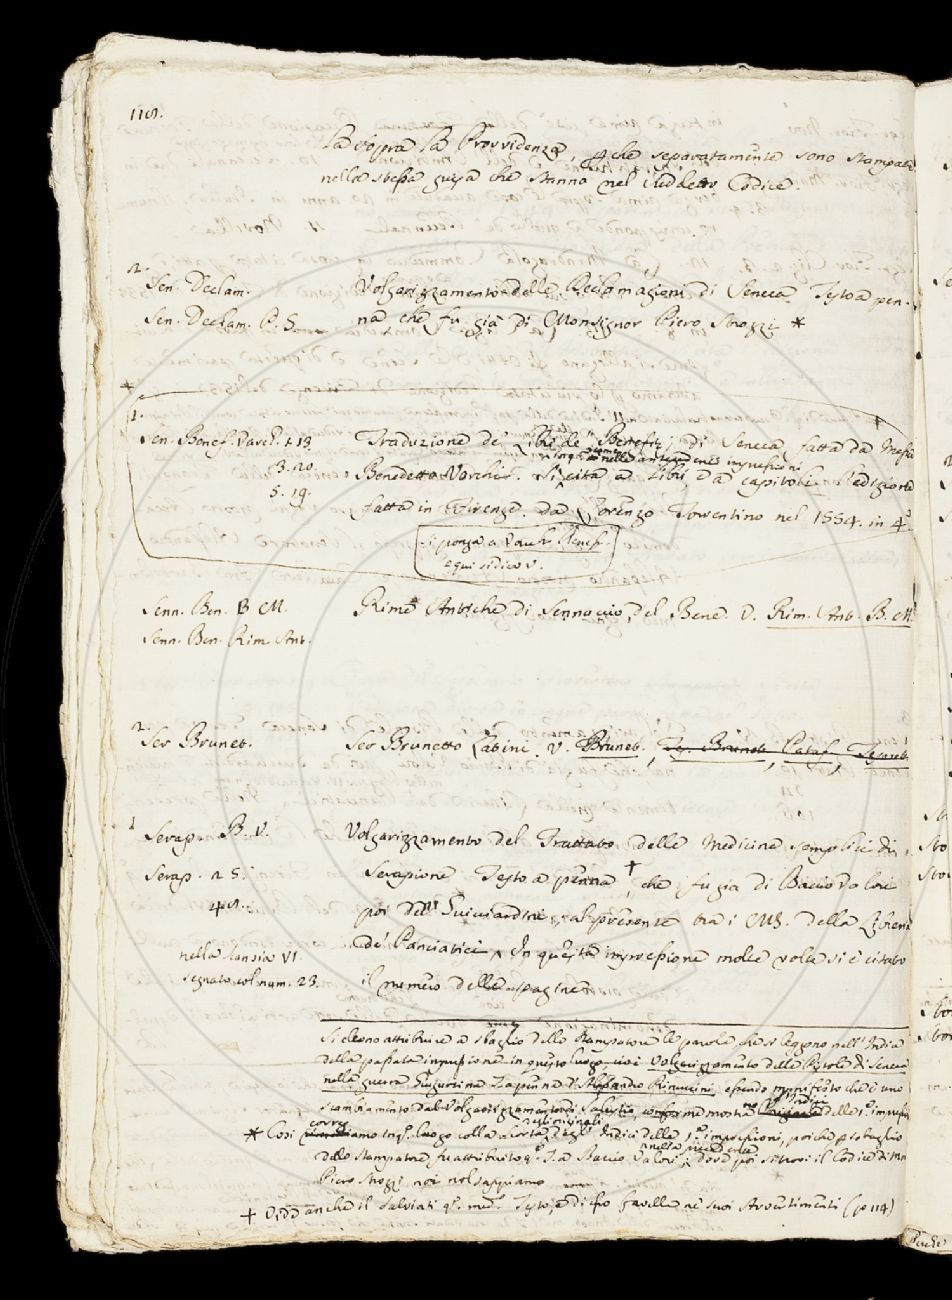 118.
la vopra la Provvidenza, che separatamente sono stampate
nella stessa guisa che stanno nel suddetto Codice.
2.
Sen. Declam.
Volgarizzamento delle Declamazioni di Seneca. Testo a pen-
Sen. Declam. P. S.
na che fu già di Monsignor Piero Strozzi *
1.
Sen. Benef. Varch. 1. 13.
Traduzione de' Libri de' Benefizj di Seneca fatta da Messer
3. 20.
Benedetto Varchi. Si cita a Libri e a capitoli l'edizione
5. 19.
fatta in Firenze da Lorenzo Torrentino nel 1554. in 4º
Si ponga a Varch. Benef.
e qui si dica V.
Senn. Ben. B M.
Rime Antiche di Sennuccio del Bene. V. Rim. Ant. B. M.
Senn. Ben. Rim. Ant.
2.
Ser Brunet.
Ser Brunetto Latini. V. Brunet., Te. Brunet. Pataf., Tesoret.
1
Serap. B. V.
Volgarizzamento del Trattato delle Medicine semplici di
Serap. n 5.
Serapione Testo a penna †, che fu già di Baccio Valori
48.
poi del Guicciardini, al presente tra i MS. della Libreria
nella Stanzia VI.
de' Panciatici. In questa impressione molte volte si è citato
segnato col num. 23.
il numero delle pagine
Si deono attribuire a sbaglio dello Stampatore le parole che si leggono nell' Indice
della passata impressione in questo luogo cioè Volgarizzamento delle Pistole di Seneca
nella guerra Giugurtina Testo a penna d' Alessandro Rinuccini, essendo manifesto che è uno
scambiamento dal Volgarizzamento di Salustio, come ne mostra
* Così correggiamo in qº luogo colla scorta degl' Indici delle 1.e impressioni, poiche per sbaglio
dello Stampatore fu attribuito qº T. a Baccio Valori; dove poi si trovi il Codice di Mr
Piero Strozzi noi nol sappiamo
† Vedd anche il Salviati qº med. Testo, e di esso favella ne' suoi Avvertimenti (p. 114)